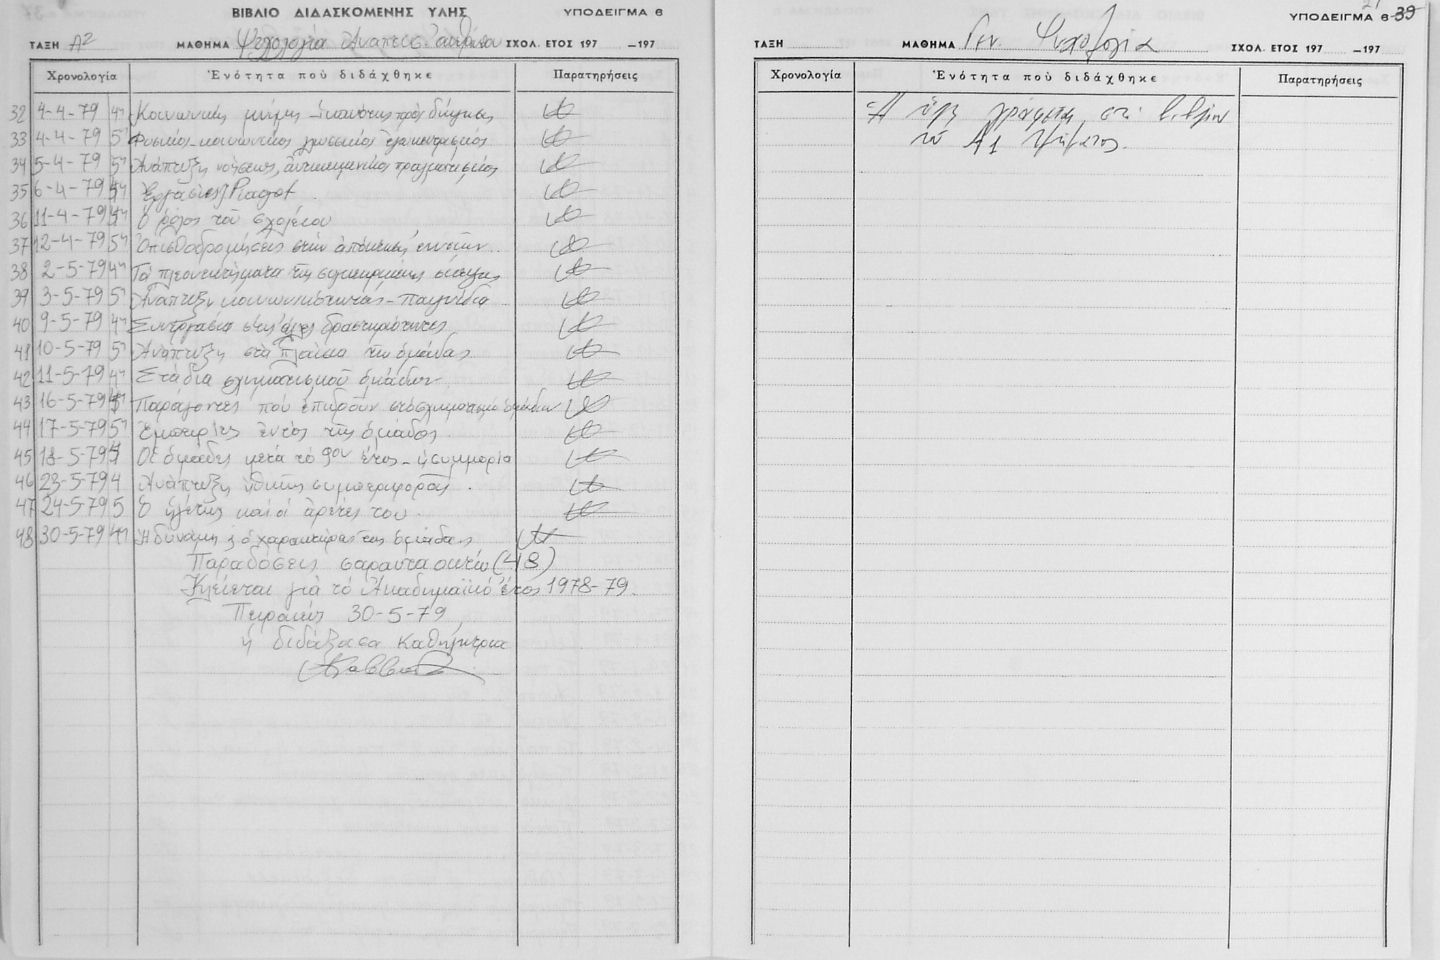 ΒΙΒΛΙΟ ΔΙΔΑΣΚΟΜΕΝΗΣ ΥΛΗΣ ΥΠΟΔΕΙΓΜΑ 6
ΤΑΞΗ Α2 ΜΑΘΗΜΑ Ψυχολογία Ἀναπτυξ. ΣΧΟΛ. ΕΤΟΣ 197 –197
Χρονολογία Ἑνότητα ποὺ διδάχθηκε Παρατηρήσεις
32 4-4-79 4η Κοινωνικὴ μνήμη ἱκανότης πρὸς διήγησις
33 4-4-79 5η Φυσικὸς-κοινωνικὸς γλωσσικὸς ἐγωκεντρισμός
34 5-4-79 5η Ἀνάπτυξη νοήσεως, ἀντικειμενικὸς πραγματισμός
35 6-4-79 4η Ἐργασίες Piaget.
36 11-4-79 4η Ὁ ρόλος τοῦ σχολείου
37 12-4-79 5η Ὀπισθοδρομήσεις στὴν ἀπόκτηση ἐννοιῶν.
38 2-5-79 4η Τὰ πλεονεκτήματα τῆς σκέψης
39 3-5-79 5η Ἀνάπτυξη κοινωνικότητας - παιγνίδια
40 9-5-79 4η Συνεργασία στὶς δραστηριότητες
41 10-5-79 5η Ἀνάπτυξη στὰ πλαίσια τῆς ὁμάδας
42 11-5-79 4η Στάδια σχηματισμοῦ ὁμάδων
43 16-5-79 4η Παράγοντες ποὺ ἐπιδροῦν στὸ σχηματισμὸ ὁμάδων
44 17-5-79 5η Ἐμπειρίες ἐντὸς τῆς ὁμάδος
45 18-5-79 4 Οἱ ὁμάδες μετὰ τὸ 9ον ἔτος - ἡ συμμορία
46 23-5-79 4 Ἀνάπτυξη ἠθικῆς συμπεριφορᾶς.
47 24-5-79 5 Ὁ ἡγέτης καὶ οἱ ἀρετές του.
48 30-5-79 4η Ἡ δύναμη & ὁ χαρακτήρας τῆς ὁμάδας
Παραδόσεις σαράντα οκτώ (48)
Κλείεται γιὰ τὸ Ἀκαδημαϊκὸ ἔτος 1978-79.
Πειραιὰς 30-5-79
ἡ διδάξασα Καθηγήτρια
ΥΠΟΔΕΙΓΜΑ 6 39
ΤΑΞΗ ΜΑΘΗΜΑ Γεν. Ψυχολογία ΣΧΟΛ. ΕΤΟΣ 197 –197
Χρονολογία Ἑνότητα ποὺ διδάχθηκε Παρατηρήσεις
Ἡ ὕλη γράφεται στὸ βιβλίον
τοῦ Α1 τμήματος.